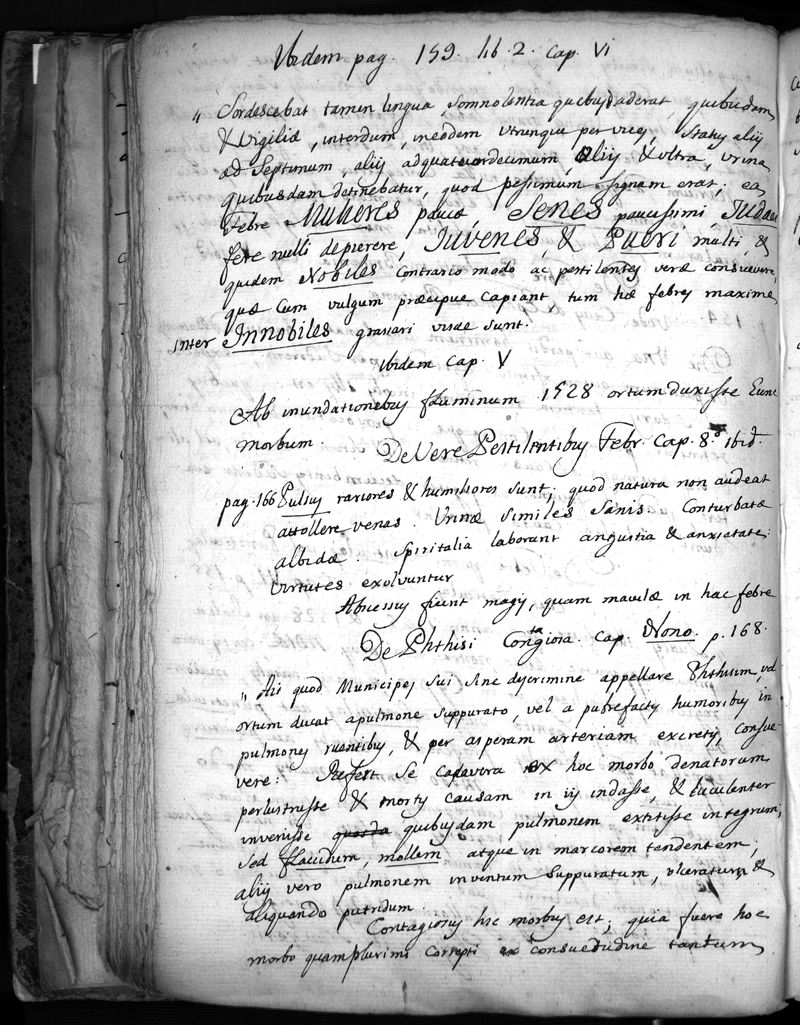 Ibidem pag. 159. lib. 2. Cap. VI
" Sordescebat tamen lingua, somnolentia quibusd aderat, quibusdam
& Vigiliæ, interdum, ineodem Utrunque per vices, Statis aliis
ad Septimum, aliis adquatuordecimum, aliis & Ultra, Urina
quibusdam detinebatur, quod pessimum signum erat; ea
Febre Mulieres paucæ, Senes paucissimi, Iudæi
fere nulli deperere, Iuvenes, & Pueri multi, &
quidem Nobiles Contrario modo ac pestilentes veræ consuevere,
quæ Cum vulgum præcipue Capiant, tum hæ febres maxime
inter Innobiles grassari visæ sunt.
Ibidem Cap. V
Ab inundationebus fluminum 1528 ortum duxisse Eunc
morbum.
De Vere Pestilentibus Febr. Cap. 8.º ibid.
pag. 166 Pulsus rariores & humiliores sunt; quod natura non audeat
attollere venas. Urinæ similes Sanis. Conturbatæ
albidæ. Spiritalia laborant angustia & anxietate;
Virtutes exolvuntur
Abcessus fiunt magis, quam maculæ in hac febre
De Phthisi Contagiosa. Cap. Nono. p. 168.
" Ais quod Municipes sui sine discrimine appellare Phthisim, vel
ortum ducat apulmone suppurato, vel a pusrefactis humoribus in
pulmones ruentibus, & per asperam arteriam excretis, consue
vere: Refert Se cadavera ex hoc morbo denatorum
perlustrasse & mortis causam in iis indasse, & luculenter
invenisse quibusdam pulmonem extitisse integrum,
sed flaccidum, mollem atque in marcorem tendentem;
aliis vero pulmonem inventum Suppuratum, ulceratum &
aliquando putridum.
Contagiosus hic morbus est; quia fuere hoc
morbo quamplurimi Correpti ex consuetudine tantum